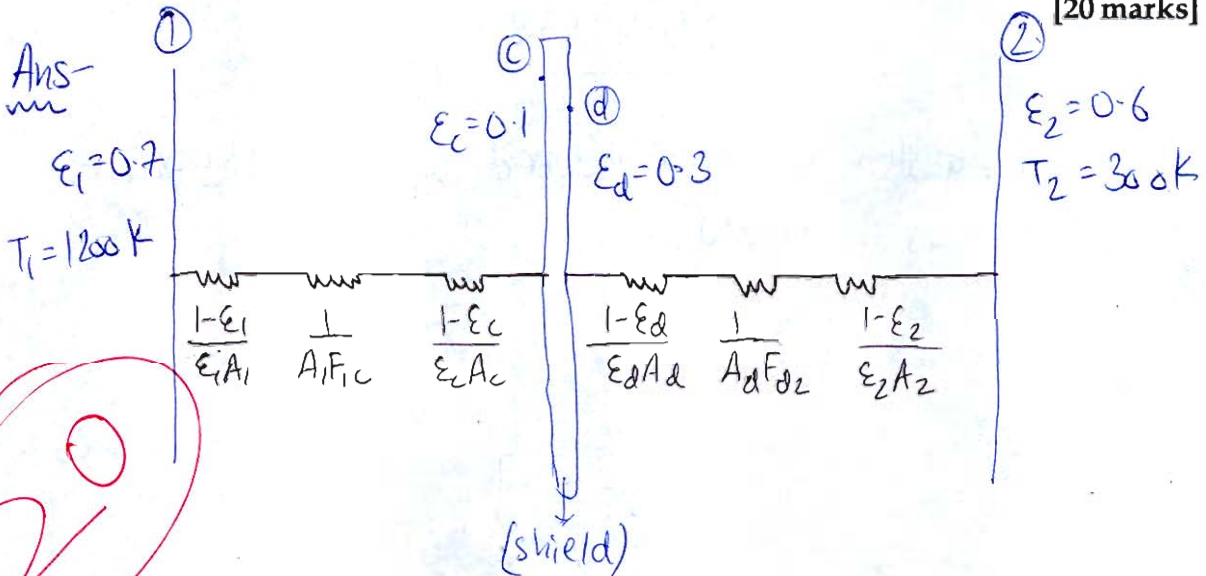 [20 marks]
Ans-
①
ⓒ
ⓓ
②
ε₁=0.7
T₁=1200 K
ε_c=0.1
ε_d=0.3
ε₂=0.6
T₂=300K
1-ε₁ / ε₁A₁
1 / A₁F₁c
1-ε_c / ε_cA_c
1-ε_d / ε_dA_d
1 / A_dF_d2
1-ε₂ / ε₂A₂
(shield)